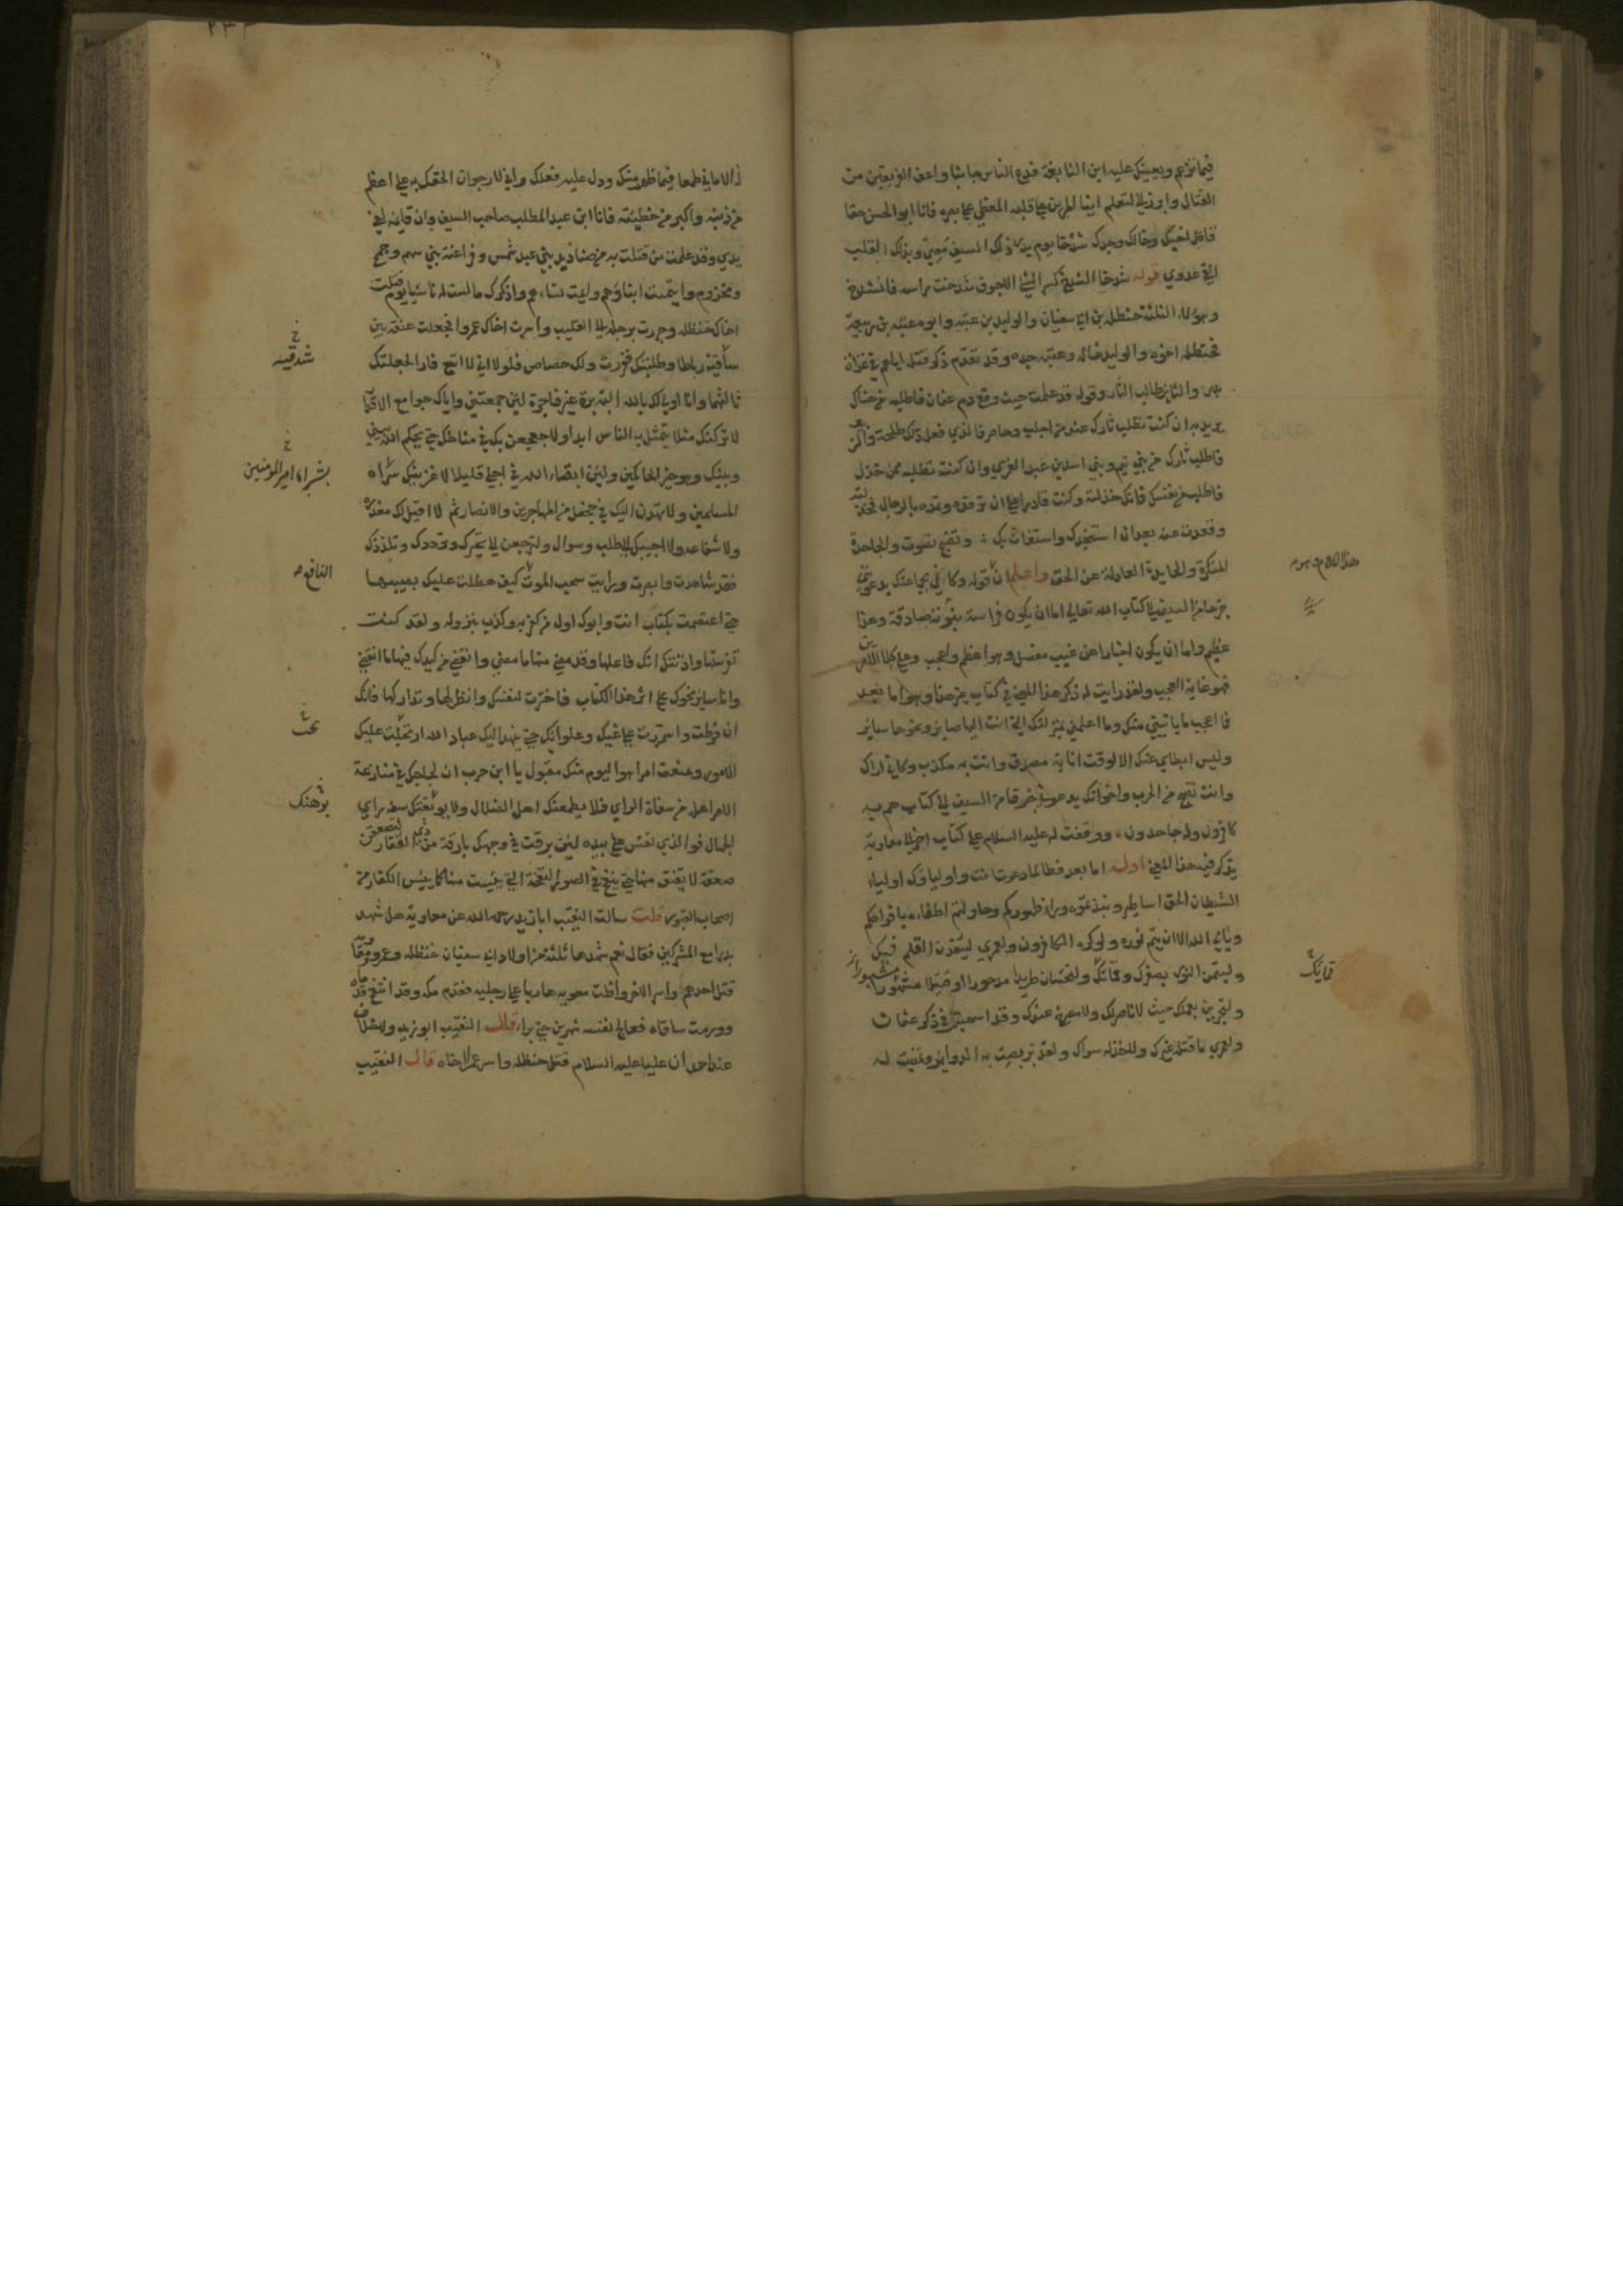 فيما تزعم ويعينك عليه ابن النابغة فدع الناس جانبا واعف الفريقين من
القتال وابرز لي لتعلم اينا المرين على قلبه المغطي على بصره فانا ابو الحسن حقا
قاتل اخيك وخالك وجدك شدخا يوم بدر وذلك السيف معي وبذلك القلب
القى عدوي قوله شدخا الشدخ كسر الشئ الاجوف شدخت راسه فانشدخ
وهؤلاء الثلثة حنظلة بن ابي سفيان والوليد بن عتبه وابوه عتبه بن ربيعة
فحنظله اخوه والوليد خاله وعتبه جده وقد تقدم ذكر قتله اياهم في غزاة
بدر والثاير طالب الثار وقوله قد علمت حيث وقع دم عثمان فاطلبه من هناك
يريد به ان كنت تطلب ثارك عند من اجلب وحاصر فالذي فعل ذلك طلحة والزبير
فاطلب ثارك من بني تيم وبني اسد بن عبد العزى وان كنت تطلبه ممن خذل
فاطلبه من نفسك فانك خذلته وكنت قادرا على ان ترفده وتمده بالرجال فخذلته
وقعدت عنه بعد ان استنجدك واستغاث بك وتضج تصوت والجاحدة
المنكرة والحايدة العادلة عن الحق واعلم ان قوله وكاني بجماعتك يدعونني
جزعا من السيف الى كتاب الله تعالى اما ان يكون فراسة نبوية صادقة وهذا
عظيم واما ان يكون اخبارا عن غيب مفصل وهو اعظم واعجب وعلى كلا الامرين
فهو غاية العجب وقد رايت له ذكر هذا المعنى في كتاب غير هذا وهو اما بعد
فما اعجب ما ياتيني منك وما اعلمني بمنزلتك التي انت اليها صاير ونحوها ساير
وليس ابطاي عنك الا لوقت انا به مصدق وانت به مكذب وكاني اراك
وانت تضج من الحرب واخوانك يدعونني خوفا من السيف الى كتاب هم به
كافرون وله جاحدون ووقفت له عليه السلام على كتاب اخر الى معاوية
يذكر فيه هذا المعنى اوله اما بعد فطالما دعوت انت واولياؤك اولياء
الشيطان الحق اساطير ونبذتموه وراء ظهوركم وحاولتم اطفاءه بافواهكم
ويابى الله الا ان يتم نوره ولو كره الكافرون ولعمري لينفذن العلم فيك
وليتمن النور بصغرك وقمائتك ولتخسان طريدا مدحورا او قتيلا مثبورا
ولتجزين بعملك حيث لا ناصر لك ولا مصرخ عندك وقد اسهبت في ذكر عثمان
ولعمري ما قتله غيرك ولا خذله سواك ولقد تربصت به الدواير وتمنيت له
هذا الاسم
قمائتك
الاماني طمعا فيما ظهر منك ودل عليه فعلك واني لارجو ان الحقك به على اعظم
من ذنبه واكبر من خطيئته فانا ابن عبد المطلب صاحب السيف وان قائمه لفي
يدي وقد علمت من قتلت به من صناديد بني عبد شمس وفراعنة بني سهم وجمح
ومخزوم وايتمت ابناؤهم وايمت نساءهم واذكرك ما لست له ناسيا يوم قتلت
اخاك حنظله وجررت برجله الى القليب واسرت اخاك عمروا فجعلت عنقه بين
ساقيه رباطا وطلبتك ففررت ولك حصاص فلولا اني لا اتبع فارا لجعلتك
ثالثهما وانا اولي لك بالله الية برة غير فاجرة لئن جمعتني واياك جوامع الاقدار
لاتركنك مثلا يتمثل به الناس ابدا ولاجعجعن بك في مناخك حتى يحكم الله بيني
وبينك وهو خير الحاكمين ولئن انسا الله في اجلي قليلا لاغزينك سراه
المسلمين ولانهدن اليك في جحفل من المهاجرين والانصار ثم لا اقبل لك معذرة
ولا شفاعة ولا اجيبك الى طلب وسوال ولترجعن الى تحيرك وترددك وتلددك
فقد شاهدت وابصرت ورايت سحب الموت كيف هطلت عليك بصيبها
حتى اعتصمت بكتاب انت وابوك اول من كفر به وكذب بنزوله ولقد كنت
تفرستها واذنتك انك فاعلها وقد مضى منها ما مضى وانقضى من كيدك فيها ما انقضى
وانا ساير نحوك على اثر هذا الكتاب فاختر لنفسك وانظر لها وتداركها فانك
ان فرطت واستمررت على غيك وغلوائك حتى ينهد اليك عباد الله ارتجت عليك
الامور ومنعت امرا هو اليوم منك مقبول يا ابن حرب ان لجاجك في منازعة
الامر اهله من سفاه الراي فلا يطمعنك اهل الضلال ولا يوبقنك سفه راي
الجهال فوالذي نفس علي بيده لئن برقت في وجهك بارقة من ذي الفقار لتصعقن
صعقة لا تفيق منها حتى ينفخ في الصور النفخة التي يئست منها كما يئس الكفار من
اصحاب القبور قلت سالت النقيب ابا زيد رحمه الله عن معاوية هل شهد
بدرا مع المشركين فقال نعم شهدها ثلثة من اولاد ابي سفيان حنظله وعمرو ومعاوية
قتل احدهم واسر الاخر وافلت معويه هاربا على رجليه فقدم مكه وقد انتفخ قدماه
وورمت ساقاه فعالج نفسه شهرين حتى برا قال النقيب ابو زيد ولا خلاف
عند احد ان عليا عليه السلام قتل حنظله واسر عمرا اخاه قال النقيب
شدقيه
بشراء امير المؤمنين
النافع
يوهنك